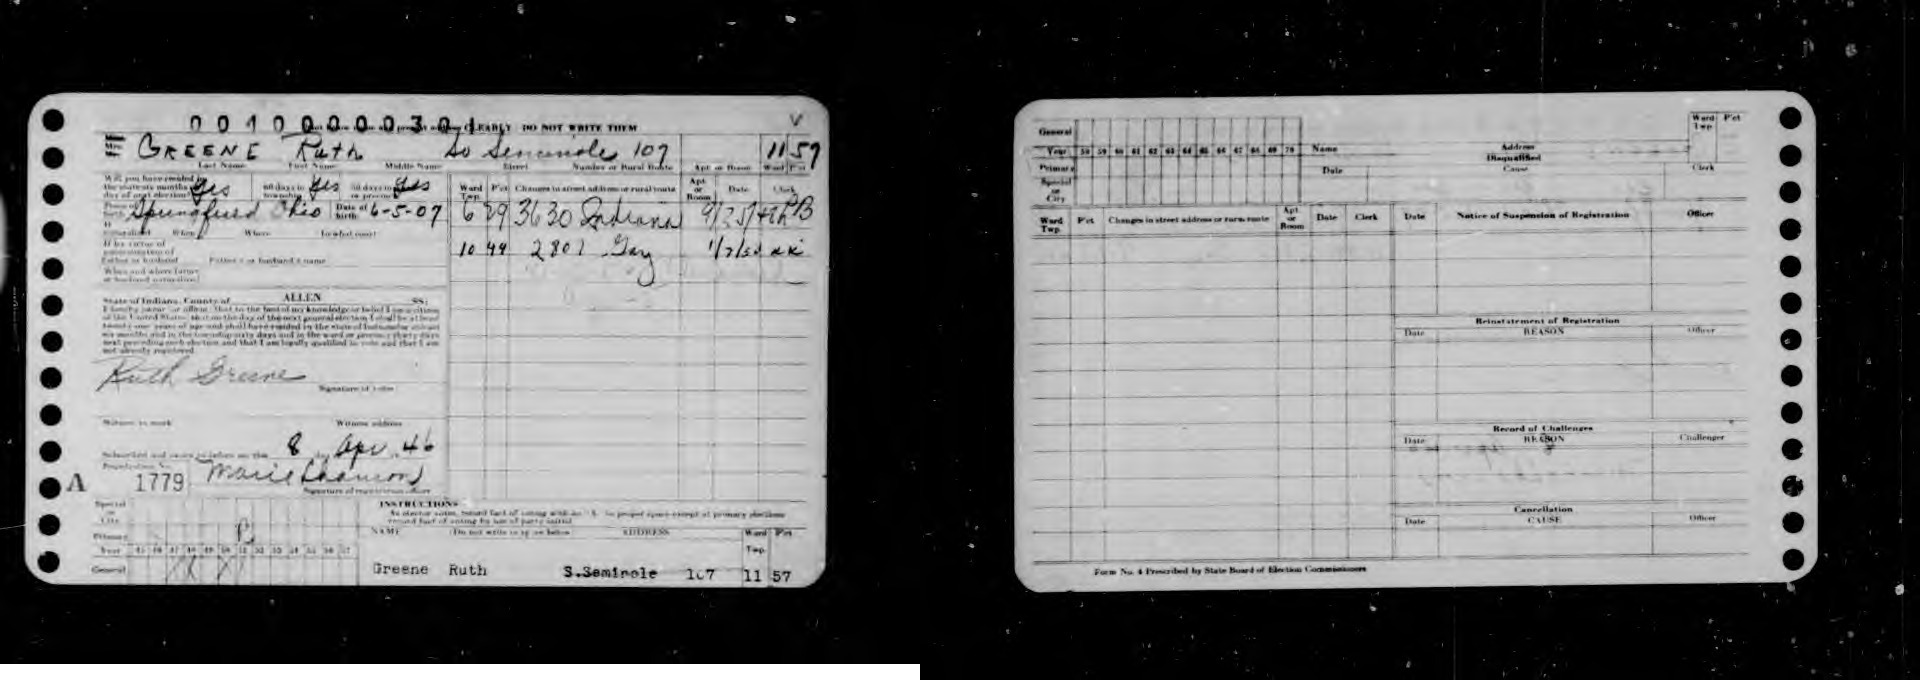 0010000301
CLEARLY DO NOT WRITE THEM
Mrs. GREENE Ruth So Seminole 107 11 57
Last Name First Name Middle Name Street Number or Rural Route Apt. or Room Ward P'ct
Will you have resided in the state six months Yes 60 days in township Yes 30 days in precinct Yes
day of next election?
Place of birth Springfield Ohio Date of birth 6-5-07
If naturalized When Where In what court
If by virtue of
naturalization of
father or husband Father's or husband's name
When and where father
or husband naturalized
Ward Twp. P'ct Changes in street address or rural route Apt. or Room Date Clerk
6 29 3630 Indiana 9/25/47
10 44 2801 Gay
State of Indiana, County of ALLEN SS:
I hereby swear (or affirm) that to the best of my knowledge or belief I am a citizen
of the United States; that on the day of the next general election I shall be at least
twenty-one years of age and shall have resided in the state of Indiana for at least
six months and in the township sixty days and in the ward or precinct thirty days
next preceding such election and that I am legally qualified to vote and that I am
not already registered.
Ruth Greene
Signature of voter
Witness to mark Witness address
Subscribed and sworn to before me this 8 day Apr 46
Registration No.
A 1779 Marie
Signature of registration officer
Special
or
City
Primary
Year 45 46 47 48 49 50 51 52 53 54 55 56 57
General
INSTRUCTIONS
As elector votes, record fact of voting with an X in proper space except at primary elections
record fact of voting by use of party initial
NAME (Do not write in space below) ADDRESS Ward Twp. P'ct
Greene Ruth S.Seminole 107 11 57
General
Year 58 59 60 61 62 63 64 65 66 67 68 69 70
Primary
Special
or
City
Name Address Ward Twp. P'ct
Disqualified
Date Cause Clerk
Ward Twp. P'ct Changes in street address or rural route Apt. or Room Date Clerk
Date Notice of Suspension of Registration Officer
Reinstatement of Registration
Date REASON Officer
Record of Challenges
Date REASON Challenger
Cancellation
Date CAUSE Officer
Form No. 4 Prescribed by State Board of Election Commissioners